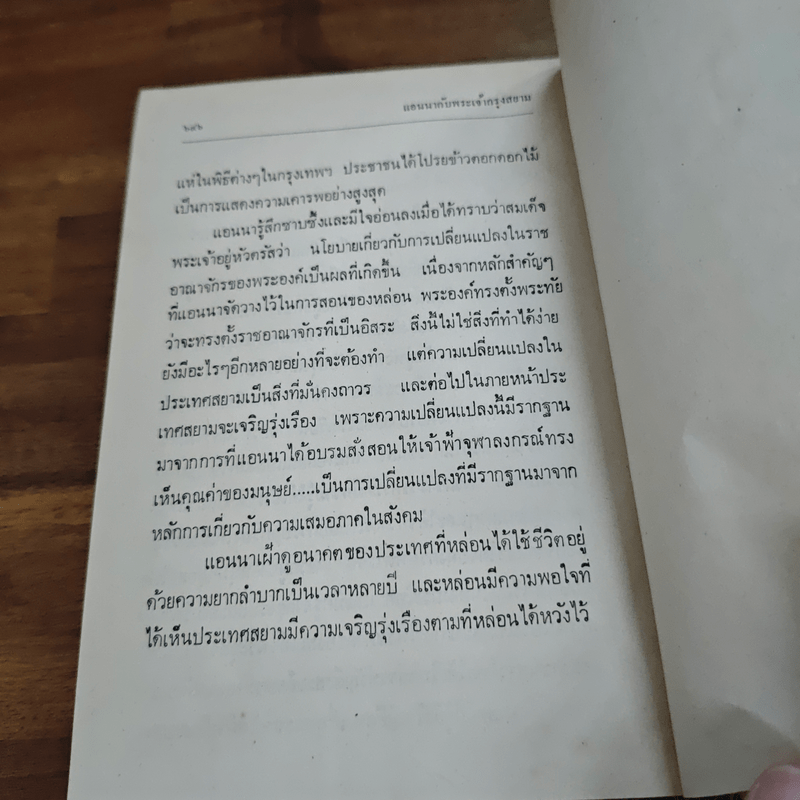 แอนนากับพระเจ้ากรุงสยาม
๖๗๖
แห่ในพิธีต่างๆในกรุงเทพฯ ประชาชนได้โปรยข้าวตอกดอกไม้
เป็นการแสดงความเคารพอย่างสูงสุด
แอนนารู้สึกซาบซึ้งและมีใจอ่อนลงเมื่อได้ทราบว่าสมเด็จ
พระเจ้าอยู่หัวตรัสว่า นโยบายเกี่ยวกับการเปลี่ยนแปลงในราช
อาณาจักรของพระองค์เป็นผลที่เกิดขึ้น เนื่องจากหลักสำคัญๆ
ที่แอนนาจัดวางไว้ในการสอนของหล่อน พระองค์ทรงตั้งพระทัย
ว่าจะทรงตั้งราชอาณาจักรที่เป็นอิสระ สิ่งนี้ไม่ใช่สิ่งที่ทำได้ง่าย
ยังมีอะไรๆอีกหลายอย่างที่จะต้องทำ แต่ความเปลี่ยนแปลงใน
ประเทศสยามเป็นสิ่งที่มั่นคงถาวร และต่อไปในภายหน้าประ
เทศสยามจะเจริญรุ่งเรือง เพราะความเปลี่ยนแปลงนี้มีรากฐาน
มาจากการที่แอนนาได้อบรมสั่งสอนให้เจ้าฟ้าจุฬาลงกรณ์ทรง
เห็นคุณค่าของมนุษย์.....เป็นการเปลี่ยนแปลงที่มีรากฐานมาจาก
หลักการเกี่ยวกับความเสมอภาคในสังคม
แอนนาเฝ้าดูอนาคตของประเทศที่หล่อนได้ใช้ชีวิตอยู่
ด้วยความยากลำบากเป็นเวลาหลายปี และหล่อนมีความพอใจที่
ได้เห็นประเทศสยามมีความเจริญรุ่งเรืองตามที่หล่อนได้หวังไว้